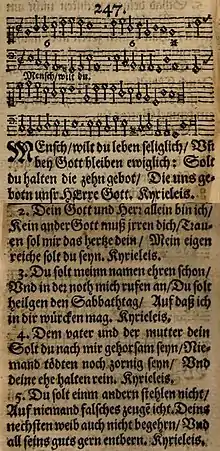 247.
6 6
Mensch/wilt du.
MEnsch/wilt du leben seliglich/ Vñ
bey Gott bleiben ewiglich: Solt
du halten die zehn gebot/ Die uns ge-
botn unsr HErre Gott. Kyrieleis.
2. Dein Gott und Herr allein bin ich/
Kein ander Gott muß jrren dich/Trau-
en sol mir das hertze dein/ Mein eigen
reiche solt du seyn. Kyrieleis.
3. Du solt meinn namen ehren schon/
Vnd in der noth mich rufen an/Du solt
heilgen den Sabbathtag/ Auf daß ich
in dir würcken mag. Kyrieleis.
4. Dem vater und der mutter dein
Solt du nach mir gehorsam seyn/Nie-
mand tödten noch zornig seyn/ Vnd
deine ehe halten rein. Kyrieleis.
5. Du solt einm andern stehlen nicht/
Auf niemand falsches zeugē icht. Deins
nechsten weib auch nicht begehrn/ Vnd
all seins guts gern entbern. Kyrieleis.